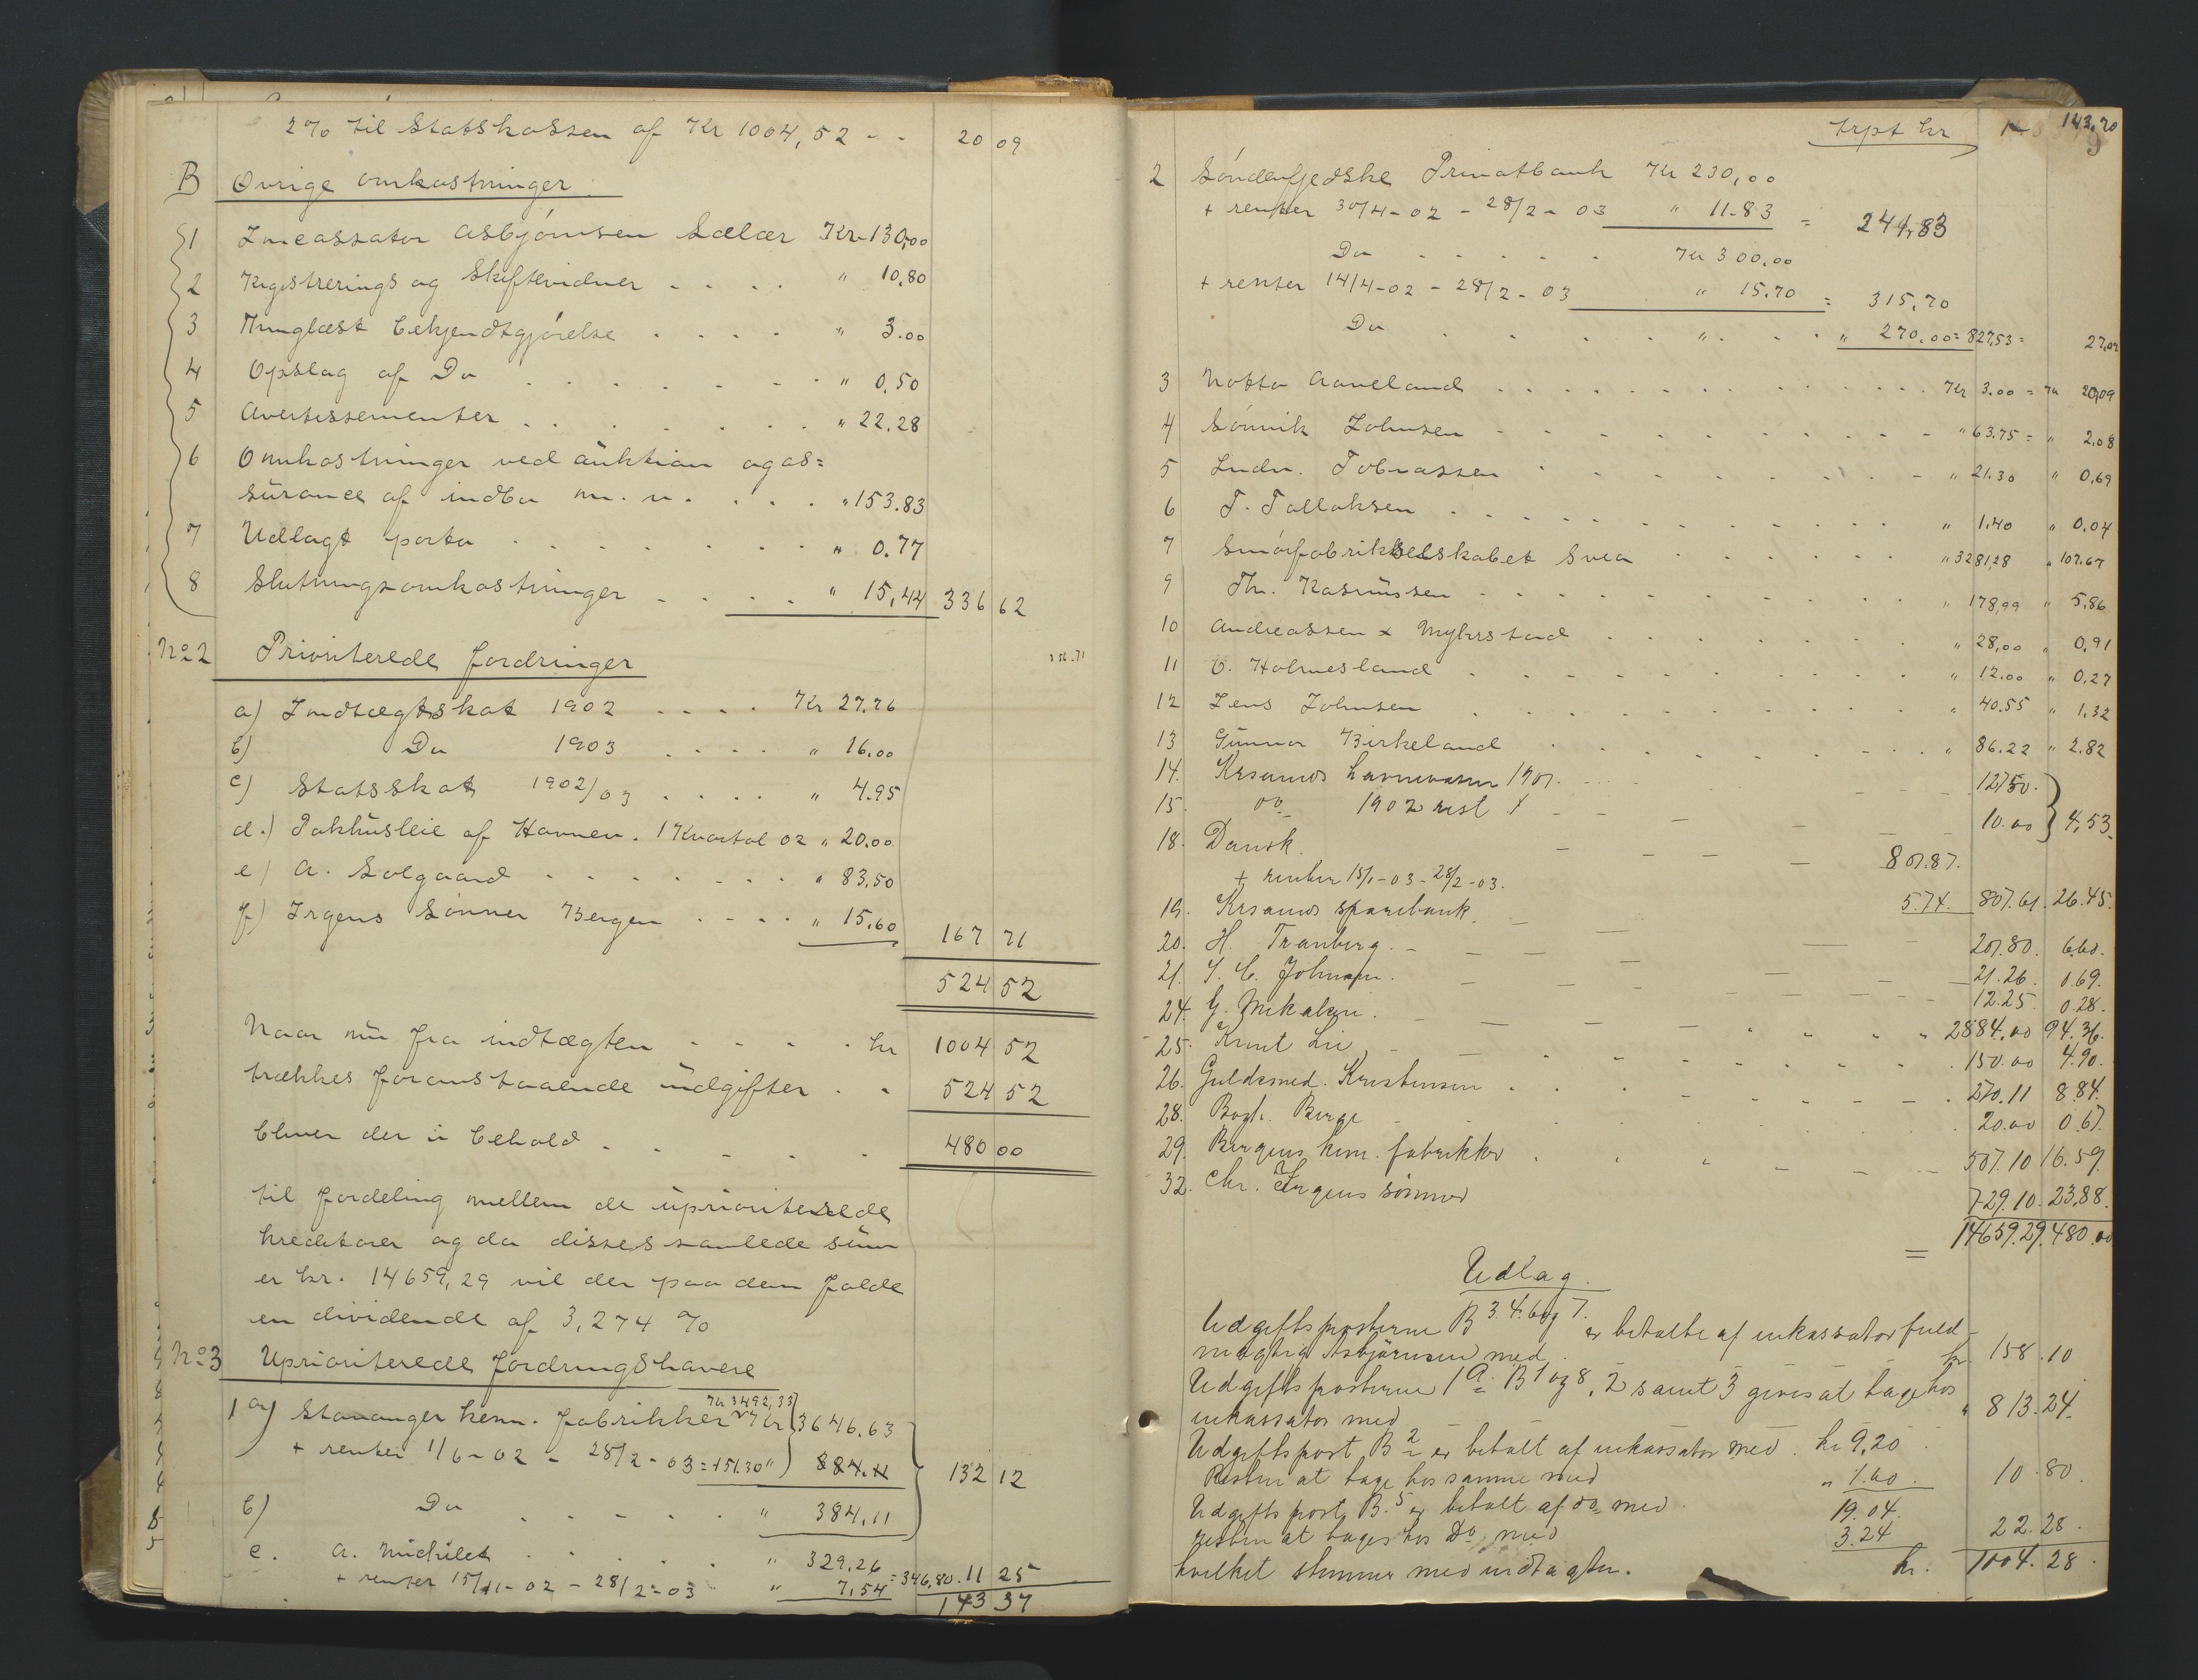 2% til Statskassen af Kr 1004,52 - - 20 09
B Øvrige omkostninger
1 Incassator Asbjörnsen Salær Kr 130,00
2 Registrerings og Skiftevidner - - - - " 10,80
3 Thinglæst bekjendtgjörelse . . . . " 3.00
4 Opslag af Do . . . . . . . " 0,50
5 Avertissementer . . . . . . . " 22,28
6 Omkostninger ved auktion og as=
surance af indbo m. v. . . . . " 153.83
7 Udlagt porto . . . . . . . " 0.77
8 Slutningsomkostninger - . . . " 15,44 336 62
No 2 Prioriterede fordringer
356.71
a) Indtægtskat 1902 . . . . Kr 27.76
b) Do 1903 . . . . " 16.00
c) Statsskat 1902/03 . . . . " 4.95
d.) Pakhusleie af Havnen. 1 Kvartal 02 " 20.00
e) A. Solgaard . . . . . . . " 83,50
f) Irgens Sönner Bergen . . . . " 15,60 167 71
524 52
Naar nu fra indtægten - - - - kr 1004 52
trækkes foranstaaende udgifter . - 524 52
bliver der i behold . - - - - . 480 00
til fordeling mellem de uprioriterede
kreditorer og da disses samlede sum
er kr. 14659,29 vil der paa dem falde
en dividende af 3,274 %
No 3 Uprioriterede fordringshavere
Kr 3492,33
1 a) Stavanger kem. fabrikker Kr 3646.63
+ renter 1/6-02 - 28/2-03 = 151.30 " 384.11 132 12
b) Do . . . . . " 384,11
c. A. Michelet . . . . . " 329,26
+ renter 15/11-02 - 28/2-03 " 7,54 = 346,80 . 11 25
143 37
trpt kr 143,70
9
2 Söndenfjedske Privatbank Kr 230,00
+ renter 30/4-02 - 28/2-03 " 11.83 = 241,83
Do . . . . . Kr 300.00
+ renter 14/4-02 - 28/2-03 " 15.70 = 315,70
Do . . . . . " . . . " 270,00 = 827,53 = 27,09
3 Notto Aaneland . . . . . . . . . . . Kr 3.00 = Kr 20,09
4 Sönnik Johnsen - - - - - - - - - " 63.75 = " 2,08
5 Ludv. Tobiassen . . . . . . . . - " 21.30 " 0,69
6 T. Tallaksen . . . . . . . . . . " 1.40 " 0.04
7 Smörfabrikselskabet Svea . . . . . . " 3281,28 " 107.67
9 Th. Rasmussen - - - - . . . . . " 178,99 " 5.86
10 Andreassen & Myhrstad . . . . . . . " 28,00 " 0,91
11 O. Holmesland . . . . . . . . . " 12.00 " 0,27
12 Jens Johnsen . . . . . . . . . " 40.55 " 1,32
13 Gunnar Birkeland . . . . . . . . " 86.22 " 2.82
14. Krsands havnevæsen 1901. - - - 12750.
15. do 1902 rest - - - - - 10.00 4,53
18. Dansk. - - - - 801.87.
+ renter 15/1-03 - 28/2-03. 5.74. 807.61. 26.45.
19. Krsands sparebank - - - 201.80. 6.60.
20. H. Tranberg. - - - - 21.26. 0.69.
21. J. C. Johnsen. - - - - 12.25 0.28.
24. G. Mikalsen. - - - - " 2884.00 94.36.
25. Knut Lie - - - - . 150.00 4.90.
26. Guldsmed. Kristensen . . . - - - . 270.11 8.84.
28. Bogh. Berge - . . . . . 20.00 0.67.
29. Bergens kem. fabrikker . . . - - - 507.10 16.59.
32. Chr. Irgens sönner 729.10. 23.88.
= 14659.29. 480.00
Udlag.
Udgiftsposterne B 3.4.6 og 7. er betalte af inkassator fuld-
mægtig Asbjörnsen med kr 158.10
Udgiftsposterne 1 A. B 1 og 8, 2 samt 3 gives at tage hos
inkassator med " 813.24.
Udgiftspost B 2 er betalt af inkassator med. kr 9,20
Resten at tage hos samme med " 1.60. 10.80.
Udgiftspost B. 5 er betalt af do med. 19.04.
resten at tages hos Do med 3.24 22.28.
hvilket stemmer med indtægten. kr. 1004.28.